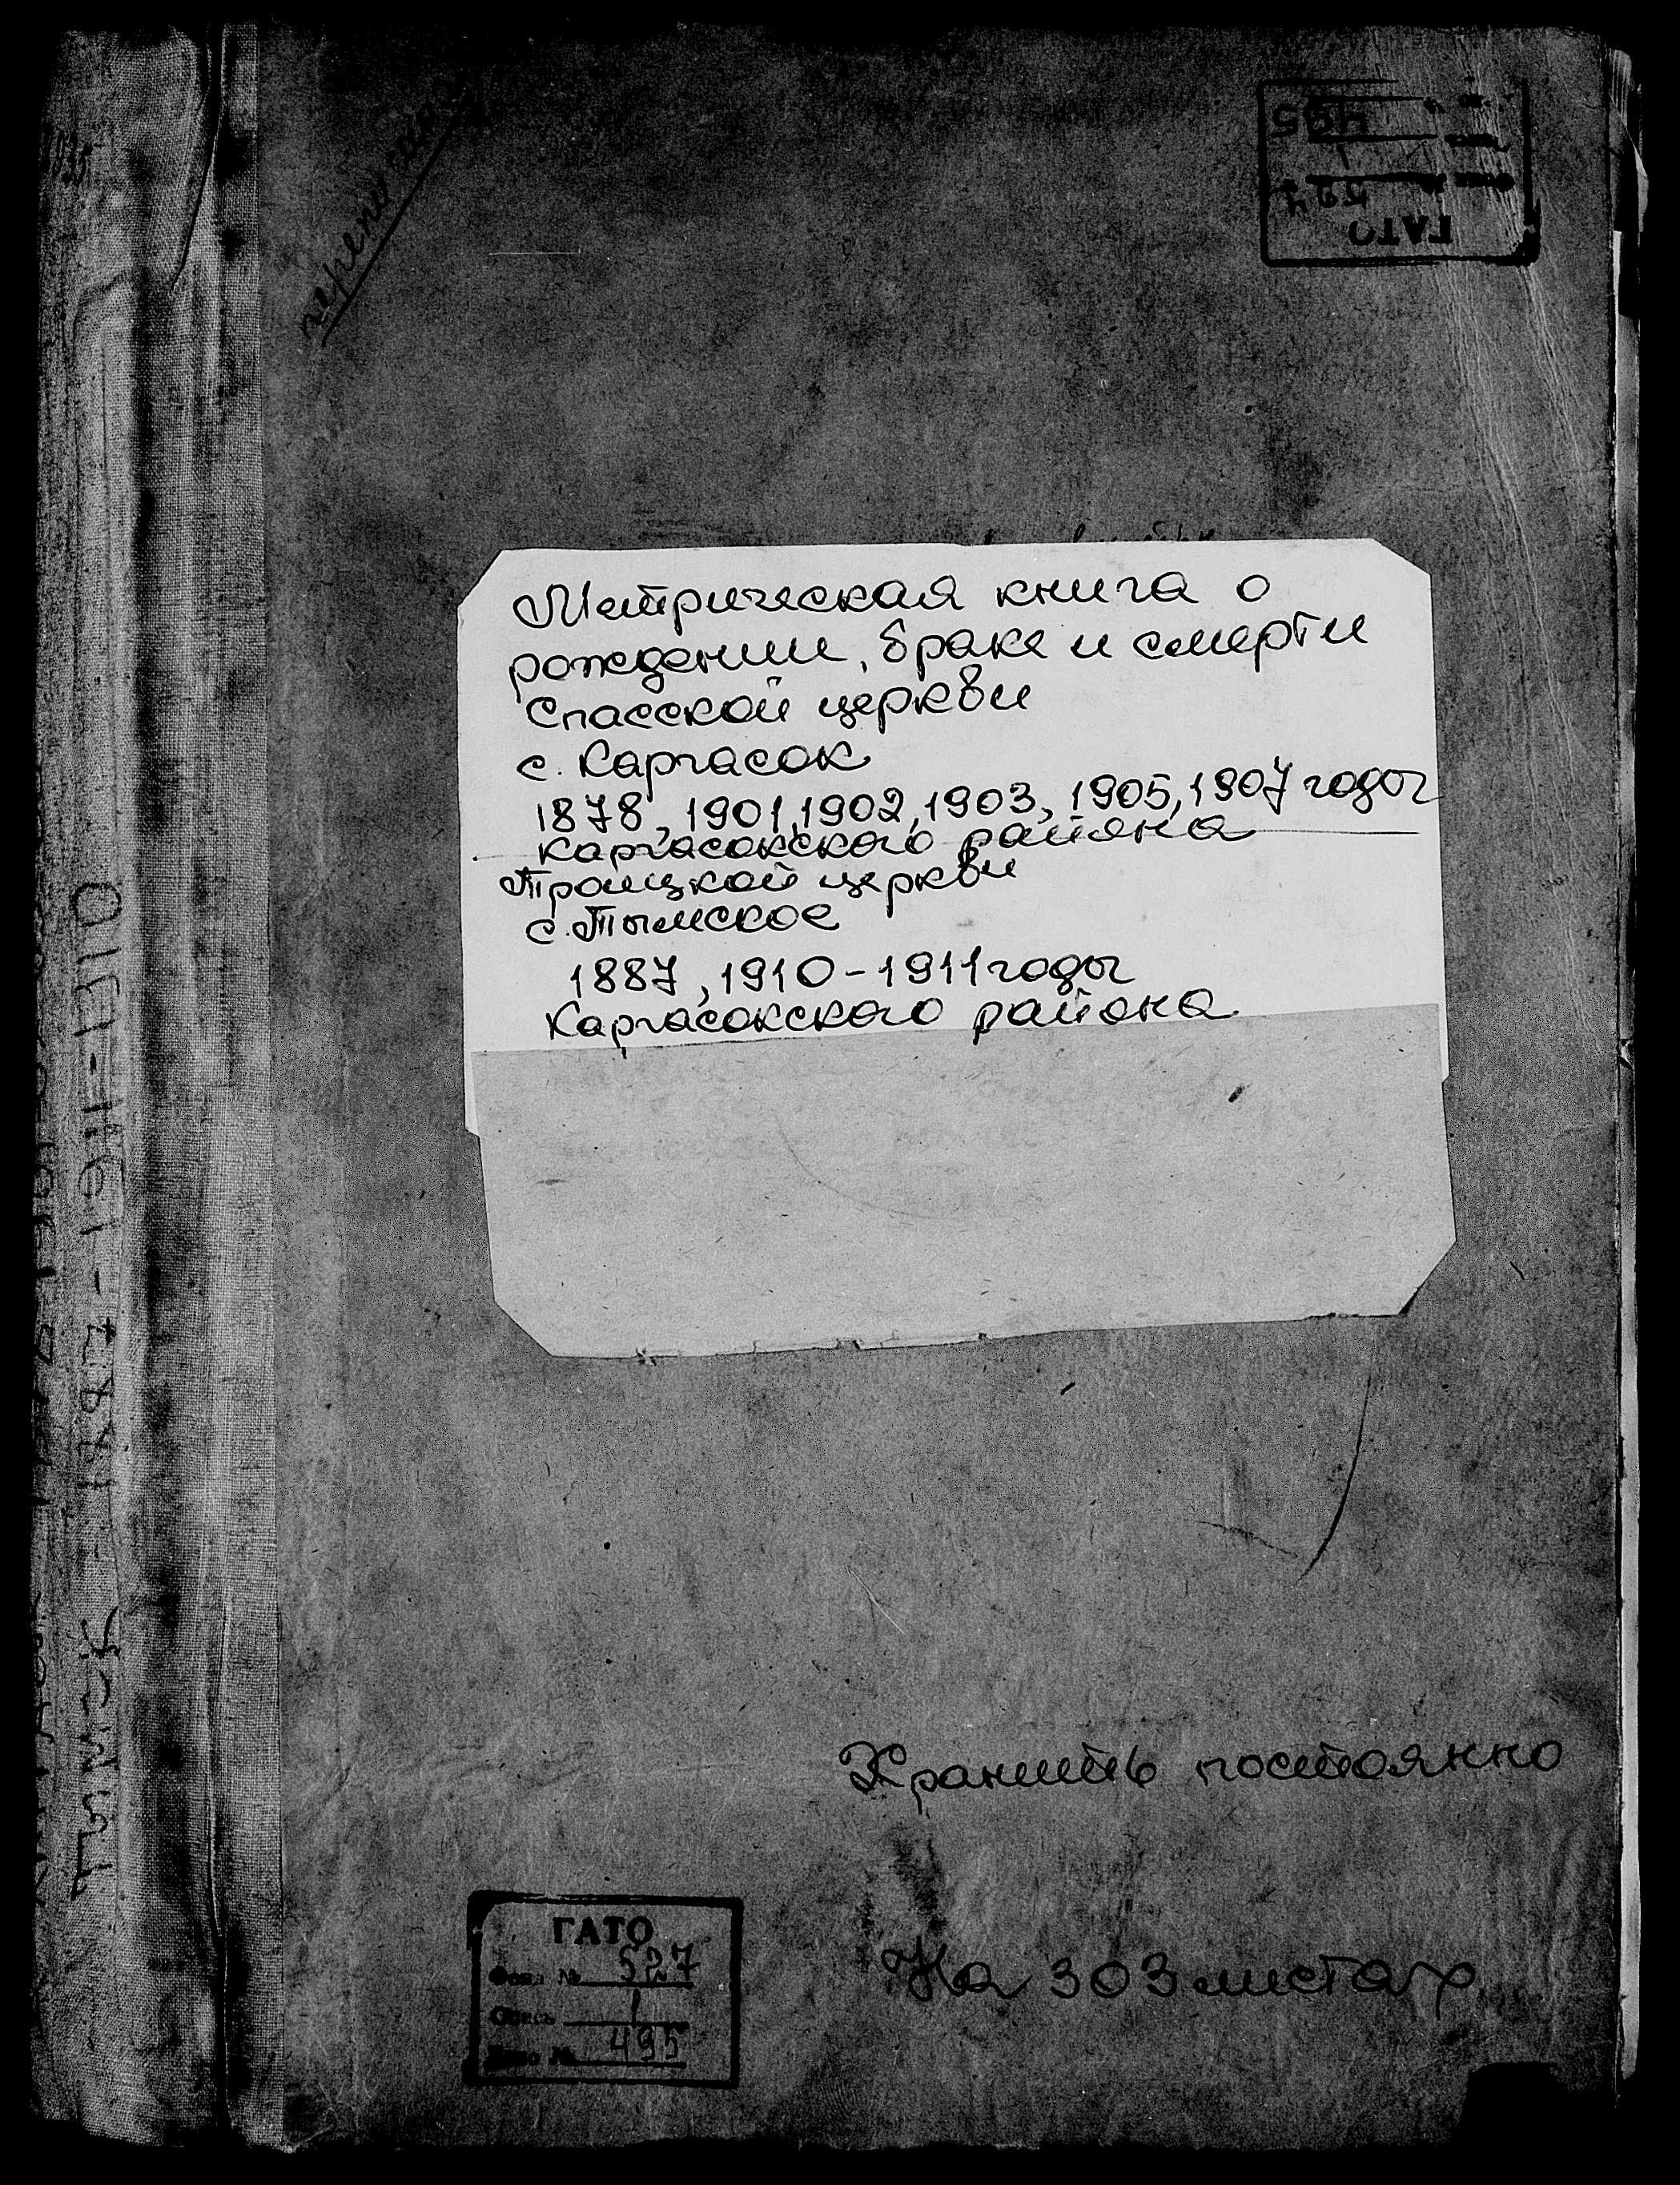 Метрическая книга о
рождении, браке и смерти
Спасской церкви
с. Каргасок
1878, 1901, 1902, 1903, 1905, 1907 годы
Каргасокского района
Троицкой церкви
с. Тымское
1887, 1910-1911 годы
Каргасокского района
Хранить постоянно
На 303 листах
ГАТО
Фонд № 527
Опись 1
Дело № 495
ГАТО
495
Тымск - 1887 - 1911-1910